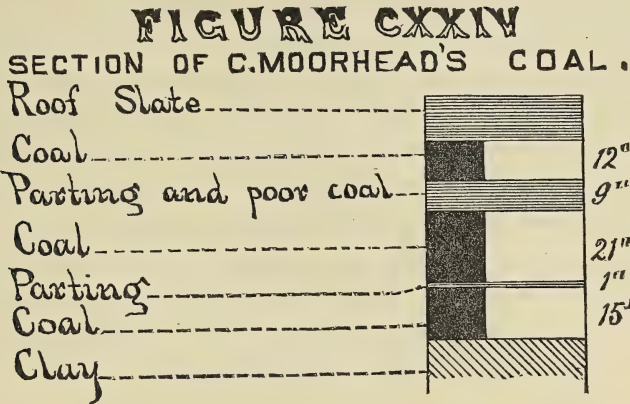 FIGURE CXXIV
SECTION OF C.MOORHEAD'S COAL.
Roof Slate
Coal 12"
Parting and poor coal 9"
Coal 21"
Parting 1"
Coal 15"
Clay